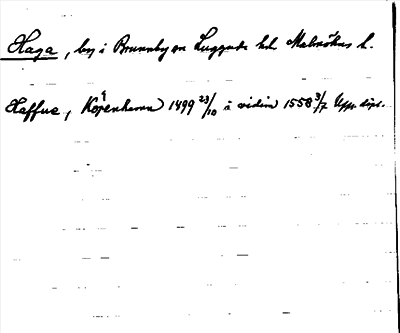 Haga, by i Brunnby sn Luggude hd. Malmöhus l.
Haffue, Köpenhamn 1499 23/10 i vidim 1558 3/7 Upps. dipl.